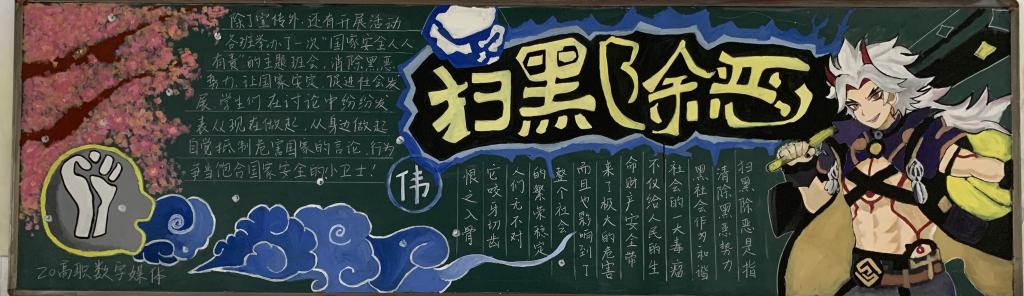 扫黑除恶
除了宣传外,还有开展活动
各班举办了一次“国家安全人人
有责”的主题班会,消除黑恶
势力,让国家安定,促进社会发
展,学生们在讨论中纷纷发
表从现在做起,从身边做起
自觉抵制危害国家的言论、行为
争当饱合国家安全的小卫士!
伟
扫黑除恶是指
清除黑恶势力
黑社会作为和谐
社会的一大毒瘤
不仅给人民的生
命财产安全带
来了极大的危害
而且也影响到了
整个社会
的繁荣稳定
人们无不对
它咬牙切齿
恨之入骨
20高职数字媒体